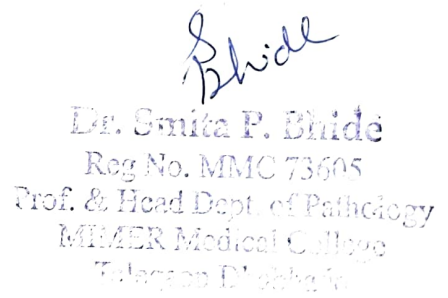 SBhide
Dr. Smita P. Bhide
Reg No. MMC 73605
Prof. & Head Dept. of Pathology
MIMER Medical College
Talegaon